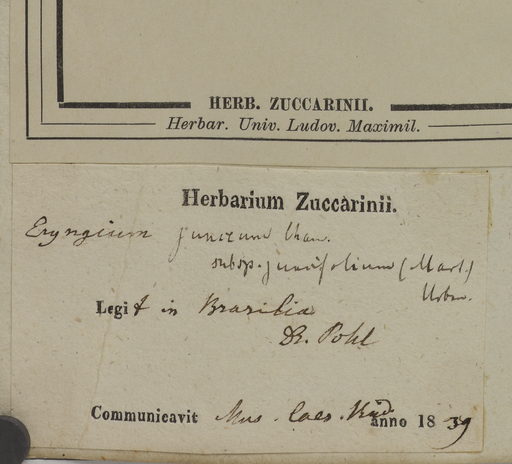 HERB. ZUCCARINII.
Herbar. Univ. Ludov. Maximil.
Herbarium Zuccarinii.
Eryngium junceum Cham.
subsp. juncifolium (Mart.)
Urban.
Legit in Brasilia
Dr. Pohl
Communicavit Mus. Caes. Vind. anno 1839